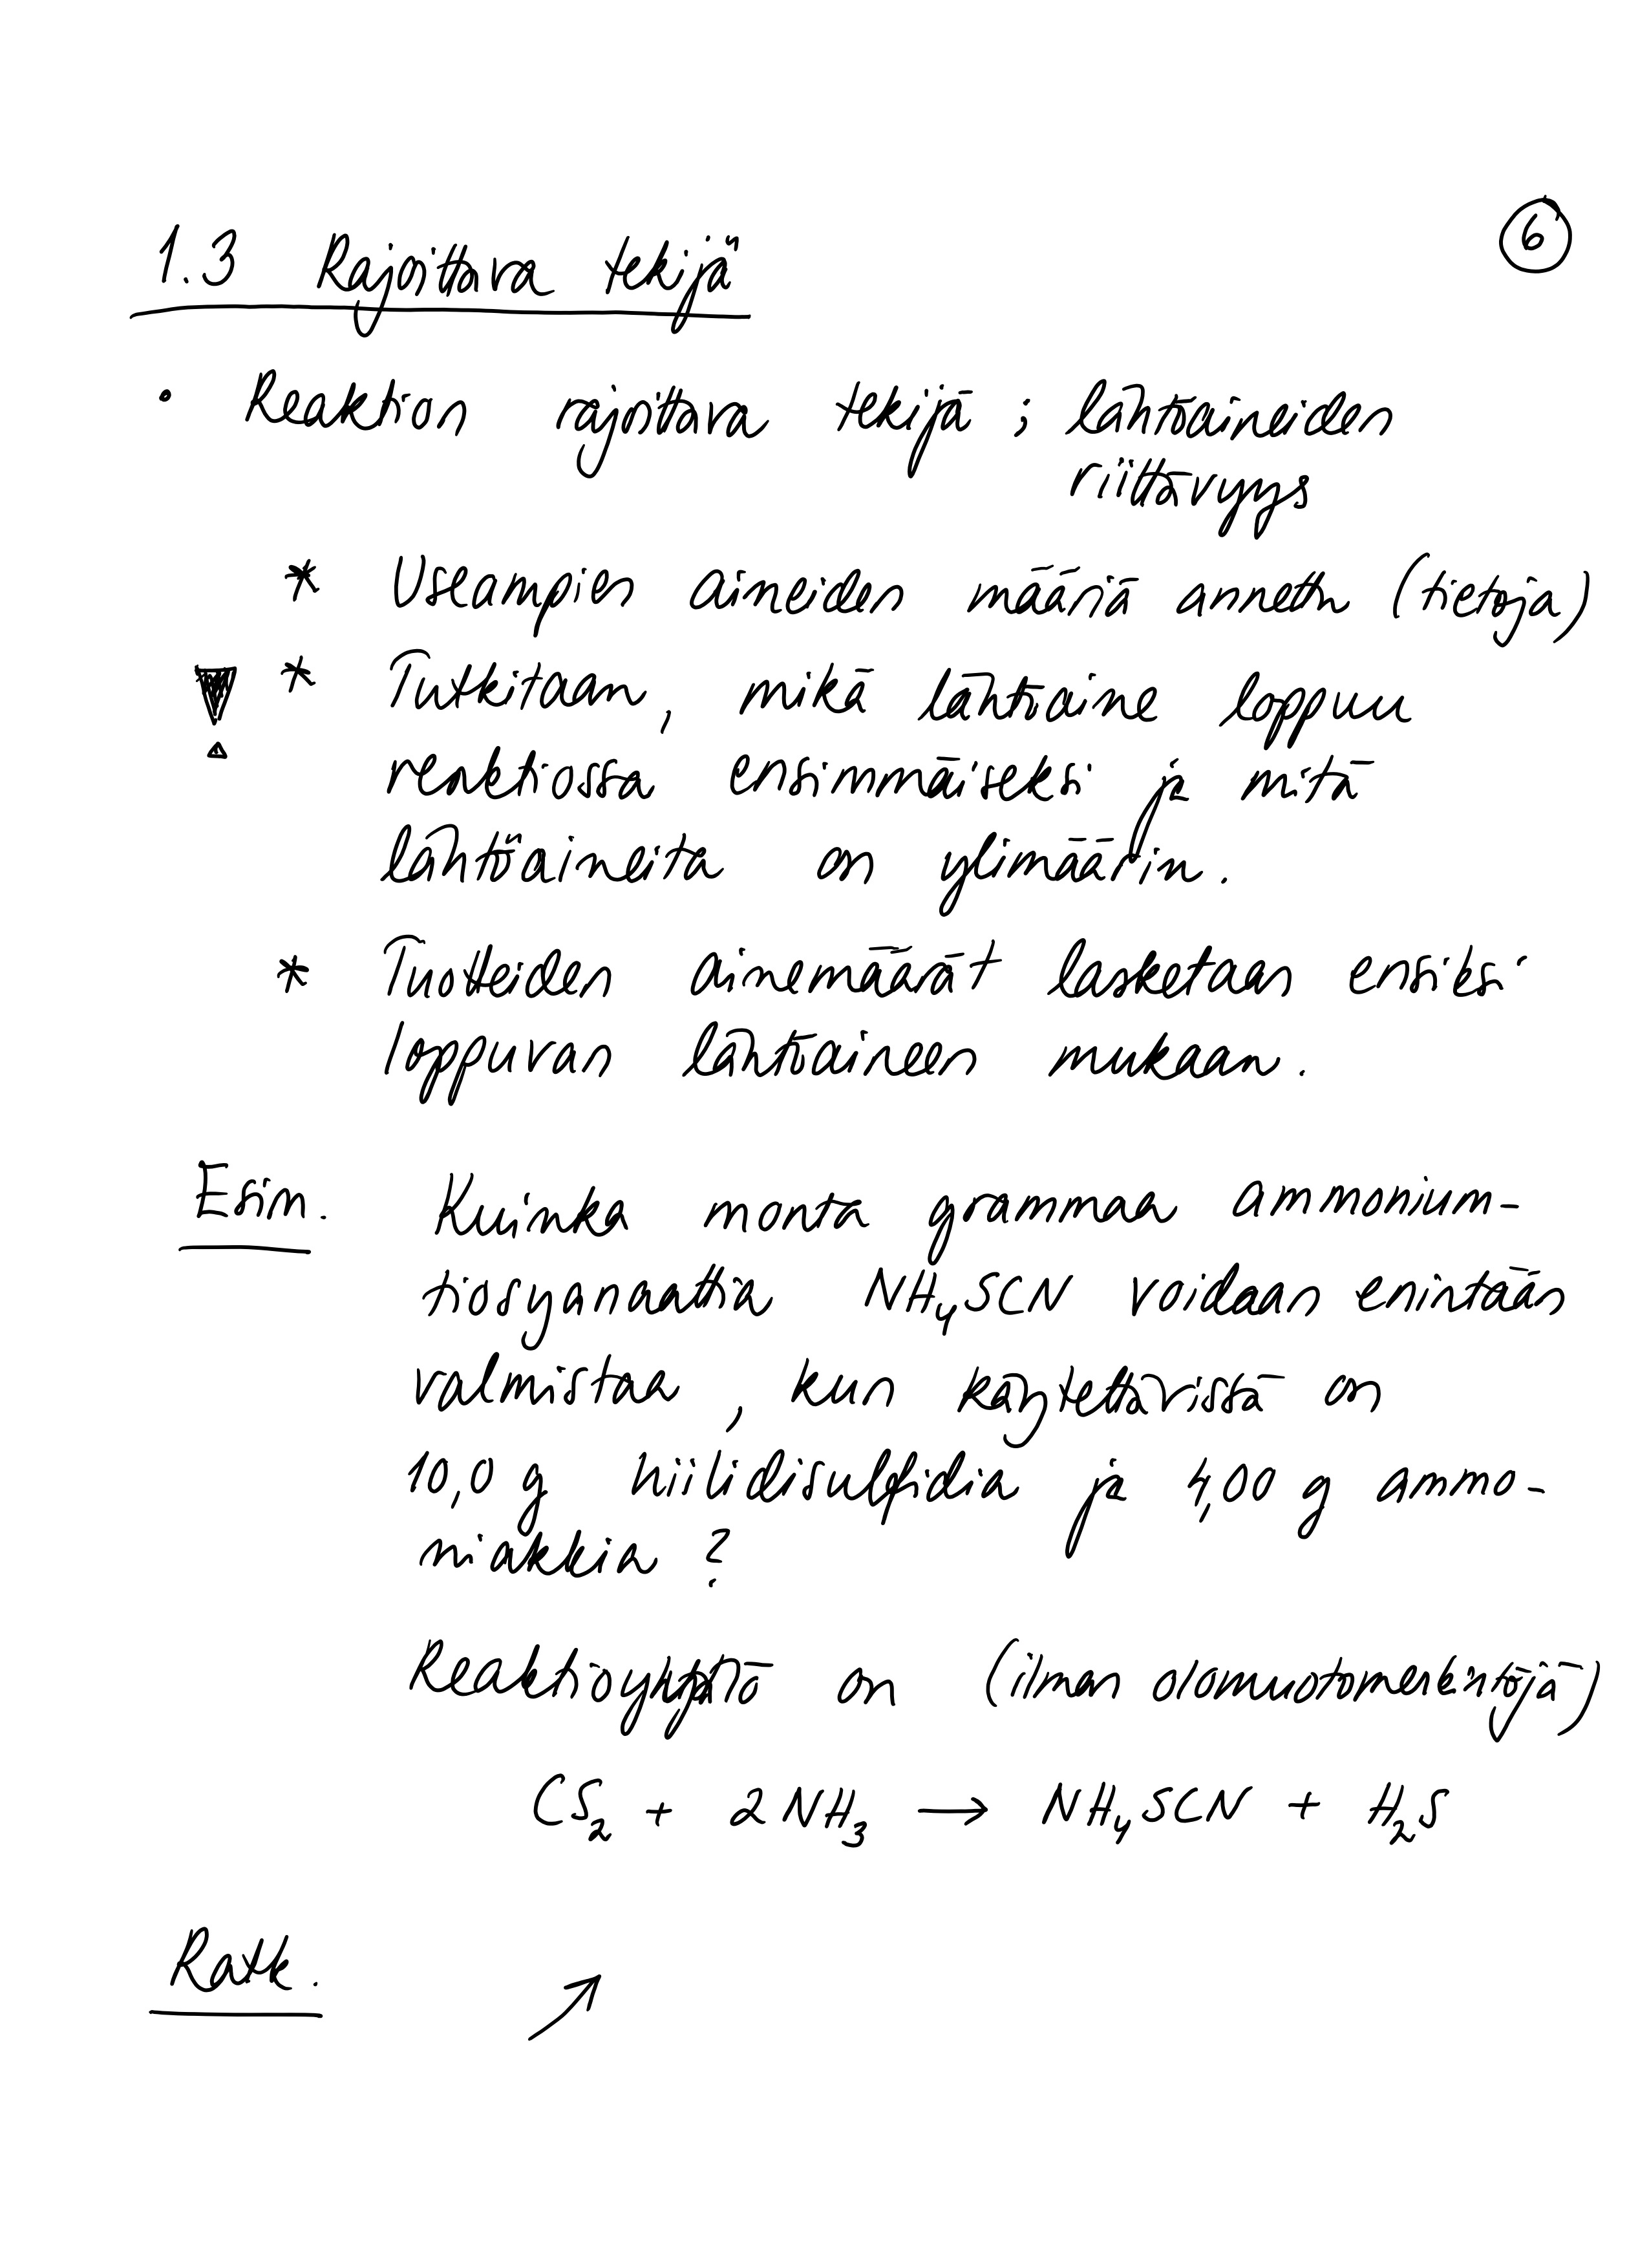 1.3 Rajoittava tekijä
6
• Reaktion rajoittava tekijä ; lähtöaineiden
riittävyys
* Useampien aineiden määriä annettu (tietoja)
* Tutkitaan, mikä lähtöaine loppuu
reaktiossa ensimmäiseksi ja mitä
lähtöaineita on ylimäärin.
* Tuotteiden ainemäärät lasketaan ensiksi
loppuvan lähtöaineen mukaan.
Esim. Kuinka monta grammaa ammonium-
tiosyanaattia NH₄SCN voidaan enintään
valmistaa, kun käytettävissä on
10,0 g hiilidisulfidia ja 4,00 g ammo-
niakkia ?
Reaktioyhtälö on (ilman olomuotomerkintöjä)
CS₂ + 2 NH₃ → NH₄SCN + H₂S
Ratk. ↗